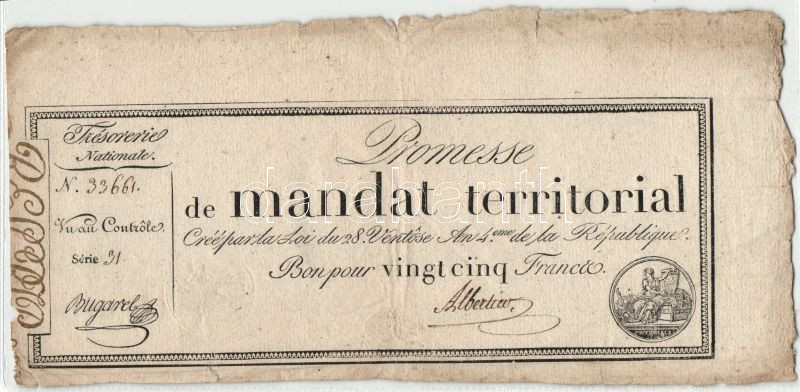 Trésorerie
Nationale.
N. 33661.
Vu au Contrôle.
Série 31.
Bugarel
Promesse
de mandat territorial
Créé par la Loi du 28. Ventôse An 4.eme de la République.
Bon pour vingt cinq Francs.